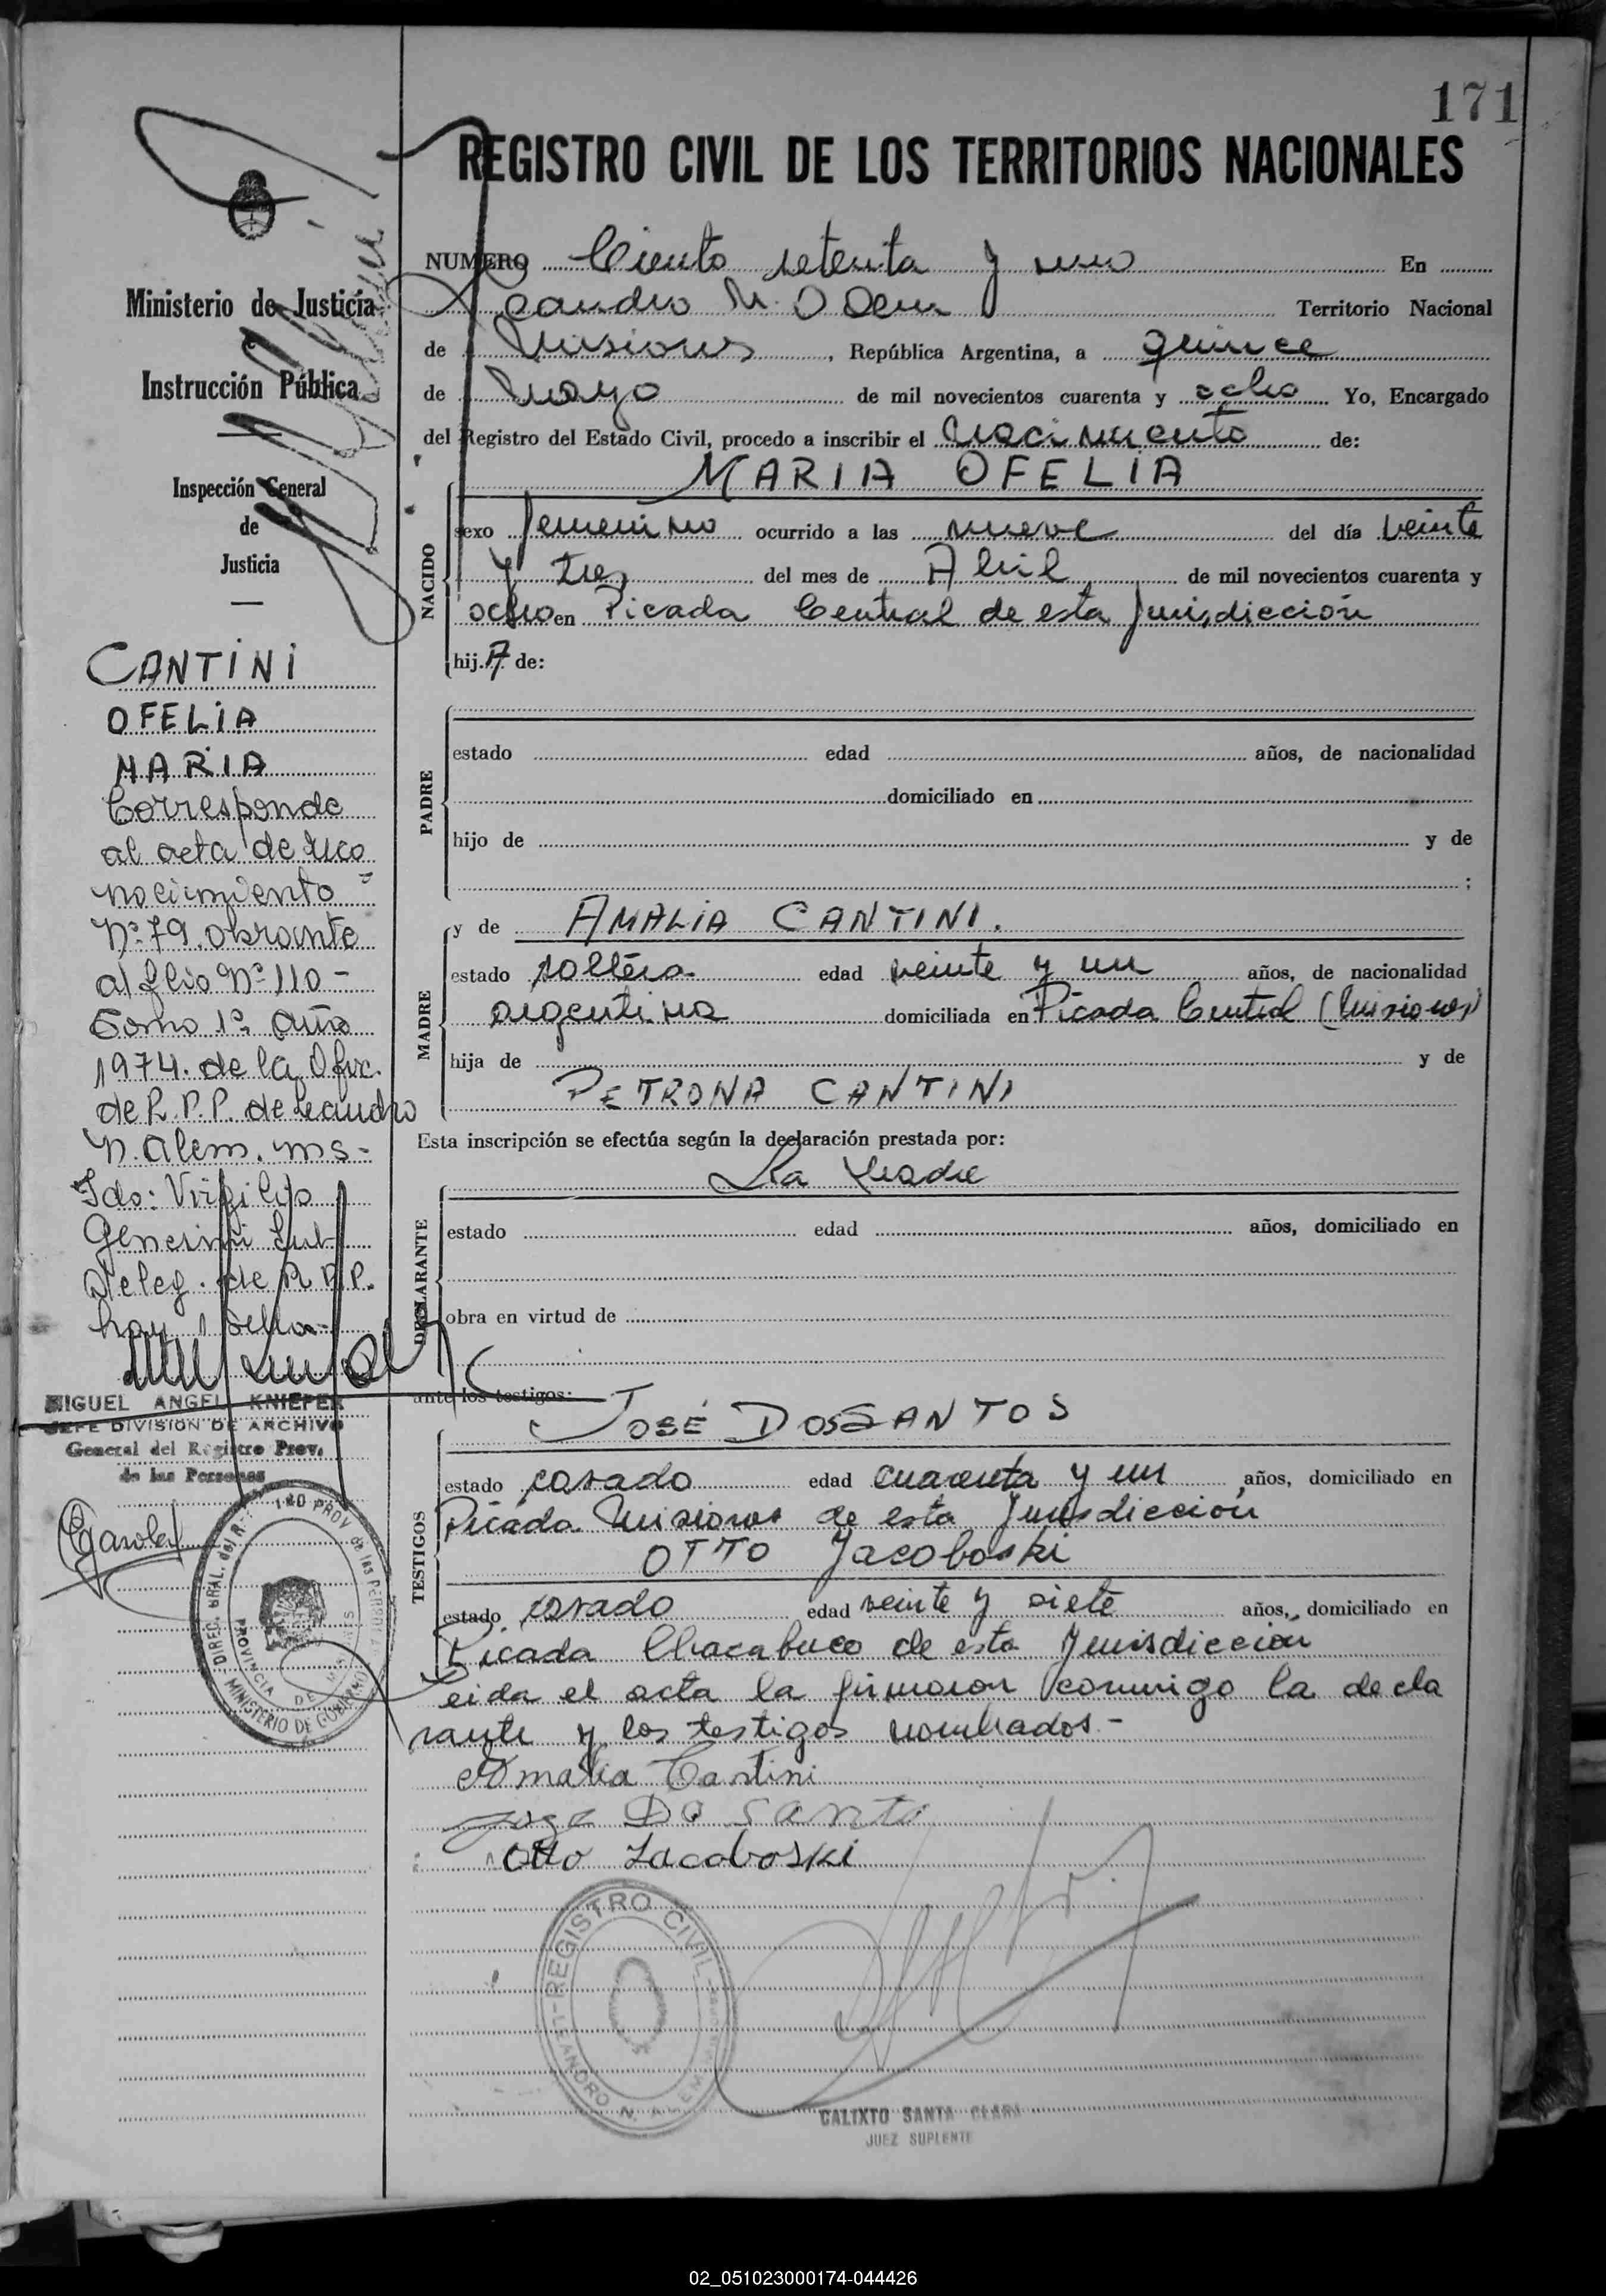 171
REGISTRO CIVIL DE LOS TERRITORIOS NACIONALES
Ministerio de Justicia
Instrucción Pública
Inspección General
de
Justicia
NUMERO Ciento setenta y uno En
Leandro N. Alem Territorio Nacional
de Misiones, República Argentina, a quince
de Mayo de mil novecientos cuarenta y ocho Yo, Encargado
del Registro del Estado Civil, procedo a inscribir el nacimiento de:
MARIA OFELIA
NACIDO
sexo femenino ocurrido a las nueve del día veinte
y tres del mes de Abril de mil novecientos cuarenta y
ocho en Picada Central de esta Jurisdicción
hij.A de:
PADRE
estado edad años, de nacionalidad
domiciliado en
hijo de y de
;
y de AMALIA CANTINI.
MADRE
estado soltera edad veinte y un años, de nacionalidad
argentina domiciliada en Picada Central (Misiones)
hija de y de
PETRONA CANTINI
Esta inscripción se efectúa según la declaración prestada por:
La Madre
DECLARANTE
estado edad años, domiciliado en
obra en virtud de
ante los testigos:
JOSÉ DOSSANTOS
TESTIGOS
estado casado edad cuarenta y un años, domiciliado en
Picada Misiones de esta Jurisdicción
OTTO Jacoboski
estado casado edad veinte y siete años, domiciliado en
Picada Chacabuco de esta Jurisdiccion
Leida el acta la firmaron conmigo la decla
rante y los testigos nombrados.-
Amalia Cantini
Otto Jacoboski
REGISTRO CIVIL
LEANDRO N. ALEM
CALIXTO SANTA CLARA
JUEZ SUPLENTE
CANTINI
OFELIA
MARIA
Corresponde
al acta de reco
nocimiento
Nº 79 obrante
al flio Nº 110 -
Tomo 1º año
1974. de la Ofic.
de R.P.P. de Leandro
N. Alem. Ms-
Fdo: Virgilio
Deleg. de R.P.P.
hay 1 sello-
MIGUEL ANGEL KNIEPER
JEFE DIVISION DE ARCHIVO
General del Registro Prov.
de las Personas
DIREC. GRAL. del R. PROV de las PERSONAS
PROVINCIA DE MISIONES
MINISTERIO DE GOBIERNO
02_051023000174-044426